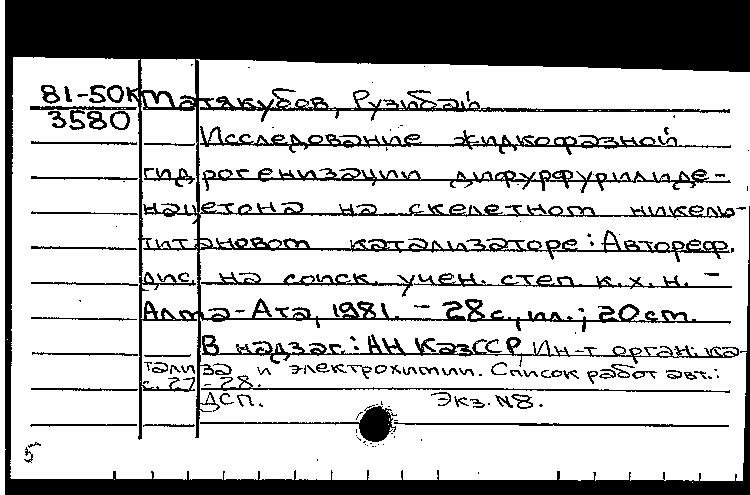 81-50к Матякубов, Рузибай.
3580
Исследование жидкофазной
гидрогенизации дифурфурилиде-
нацетона на скелетном никель-
титановом катализаторе: Автореф.
дис. на соиск. учен. степ. к. х. н. -
Алма-Ата, 1981. - 28с., ил.; 20см.
В надзаг.: АН КазССР, Ин-т орган. ка-
тализа и электрохимии. Список работ авт.:
с. 27-28.
ДСП. Экз. N8.
5